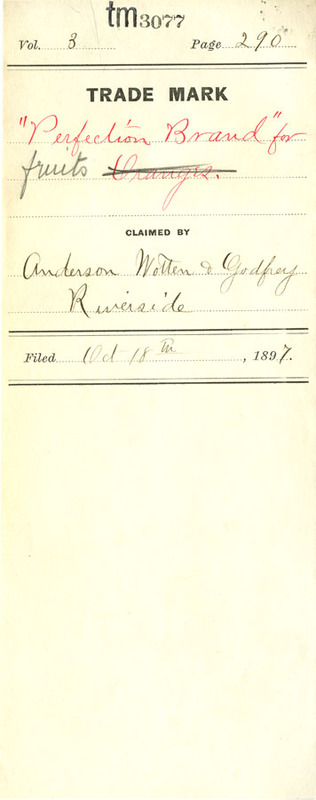 tm3077
Vol. 3 Page 290
TRADE MARK
"Perfection Brand" for
fruits Oranges.
CLAIMED BY
Anderson Wotten & Godfrey
Riverside
Filed Oct 18th, 1897.